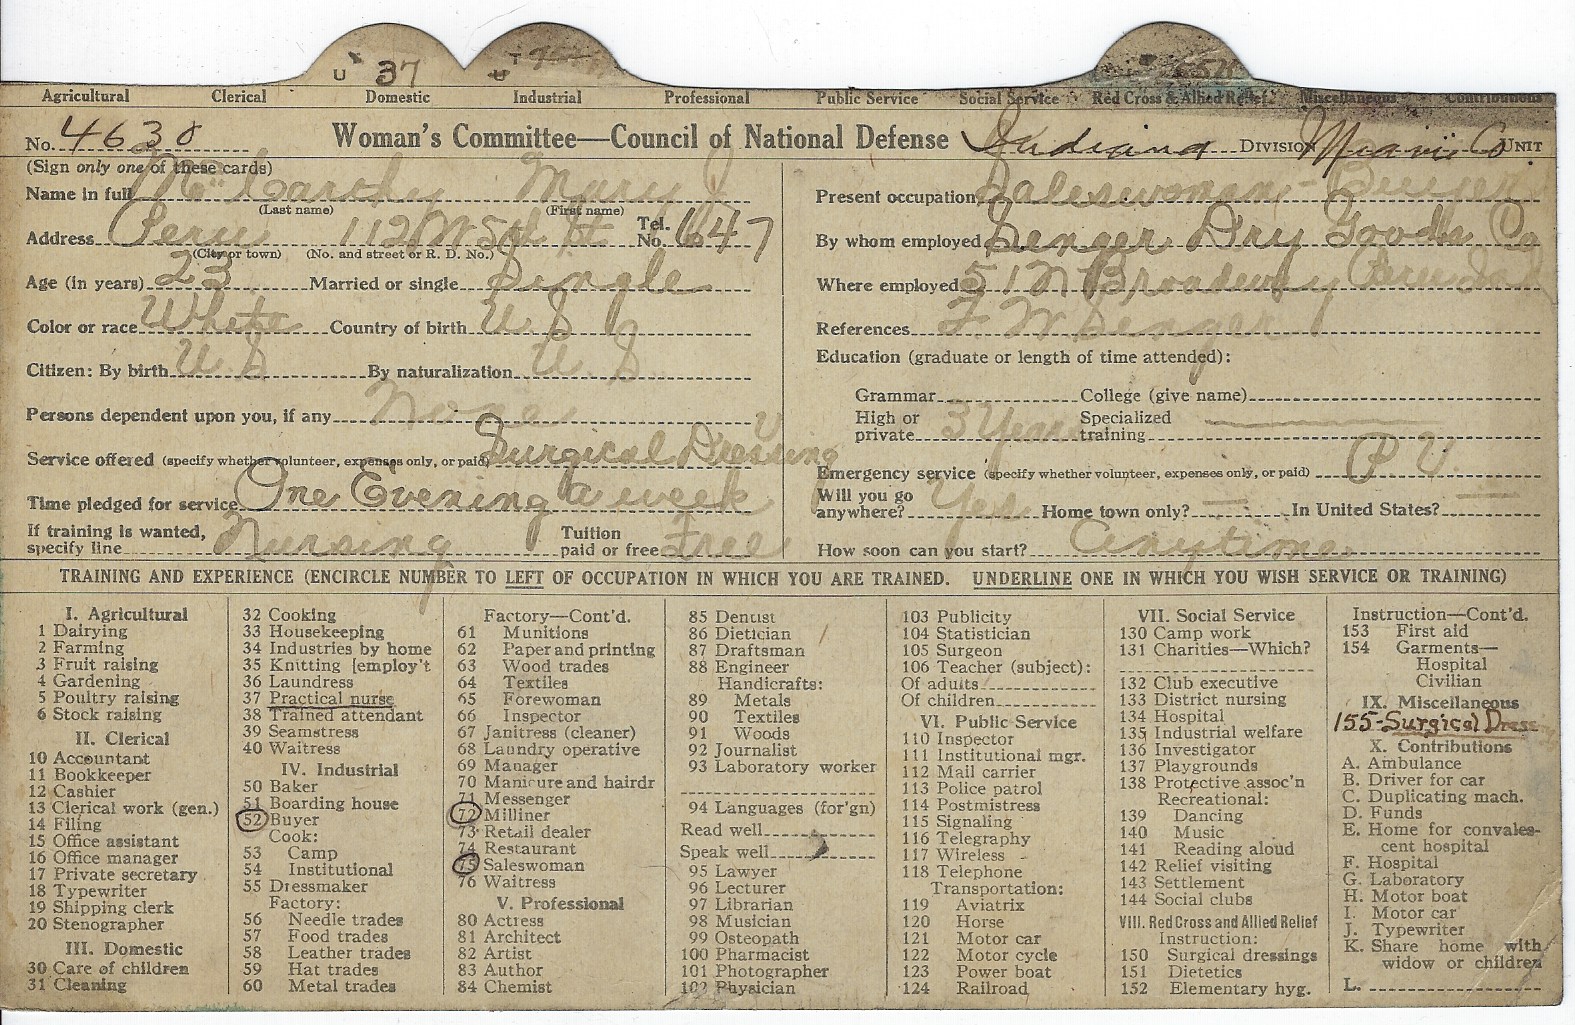 U 37
Agricultural Clerical Domestic Industrial Professional Public Service Social Service Red Cross & Allied Relief Miscellaneous Contributions
No. 4630 Woman's Committee—Council of National Defense Indiana DIVISION Miami Co UNIT
(Sign only one of these cards)
Name in full McCarthy Mary J
(Last name) (First name)
Address Peru 112 W 5th St Tel. No. 1647
(City or town) (No. and street or R. D. No.)
Age (in years) 23 Married or single Single
Color or race White Country of birth U S
Citizen: By birth U. S By naturalization U. S.
Persons dependent upon you, if any None
Service offered (specify whether volunteer, expenses only, or paid) Surgical Dressing V
Time pledged for service One Evening a week
If training is wanted, specify line Nursing Tuition paid or free Free
Present occupation Saleswoman - Buyer
By whom employed Senger Dry Goods Co
Where employed 51 N Broadway Peru Ind
References F. W Senger
Education (graduate or length of time attended):
Grammar College (give name)
High or private 3 Years Specialized training
Emergency service (specify whether volunteer, expenses only, or paid) P V.
Will you go anywhere? Yes Home town only? — In United States? —
How soon can you start? Anytime
TRAINING AND EXPERIENCE (ENCIRCLE NUMBER TO LEFT OF OCCUPATION IN WHICH YOU ARE TRAINED. UNDERLINE ONE IN WHICH YOU WISH SERVICE OR TRAINING)
I. Agricultural
1 Dairying
2 Farming
3 Fruit raising
4 Gardening
5 Poultry raising
6 Stock raising
II. Clerical
10 Accountant
11 Bookkeeper
12 Cashier
13 Clerical work (gen.)
14 Filing
15 Office assistant
16 Office manager
17 Private secretary
18 Typewriter
19 Shipping clerk
20 Stenographer
III. Domestic
30 Care of children
31 Cleaning
32 Cooking
33 Housekeeping
34 Industries by home
35 Knitting [employ't
36 Laundress
37 Practical nurse
38 Trained attendant
39 Seamstress
40 Waitress
IV. Industrial
50 Baker
51 Boarding house
52 Buyer
Cook:
53 Camp
54 Institutional
55 Dressmaker
Factory:
56 Needle trades
57 Food trades
58 Leather trades
59 Hat trades
60 Metal trades
Factory—Cont'd.
61 Munitions
62 Paper and printing
63 Wood trades
64 Textiles
65 Forewoman
66 Inspector
67 Janitress (cleaner)
68 Laundry operative
69 Manager
70 Manicure and hairdr
71 Messenger
72 Milliner
73 Retail dealer
74 Restaurant
75 Saleswoman
76 Waitress
V. Professional
80 Actress
81 Architect
82 Artist
83 Author
84 Chemist
85 Dentist
86 Dietician
87 Draftsman
88 Engineer
Handicrafts:
89 Metals
90 Textiles
91 Woods
92 Journalist
93 Laboratory worker
94 Languages (for'gn)
Read well
Speak well
95 Lawyer
96 Lecturer
97 Librarian
98 Musician
99 Osteopath
100 Pharmacist
101 Photographer
102 Physician
103 Publicity
104 Statistician
105 Surgeon
106 Teacher (subject):
Of adults
Of children
VI. Public Service
110 Inspector
111 Institutional mgr.
112 Mail carrier
113 Police patrol
114 Postmistress
115 Signaling
116 Telegraphy
117 Wireless
118 Telephone
Transportation:
119 Aviatrix
120 Horse
121 Motor car
122 Motor cycle
123 Power boat
124 Railroad
VII. Social Service
130 Camp work
131 Charities—Which?
132 Club executive
133 District nursing
134 Hospital
135 Industrial welfare
136 Investigator
137 Playgrounds
138 Protective assoc'n
Recreational:
139 Dancing
140 Music
141 Reading aloud
142 Relief visiting
143 Settlement
144 Social clubs
VIII. Red Cross and Allied Relief
Instruction:
150 Surgical dressings
151 Dietetics
152 Elementary hyg.
Instruction—Cont'd.
153 First aid
154 Garments—
Hospital
Civilian
IX. Miscellaneous
155-Surgical Dress
X. Contributions
A. Ambulance
B. Driver for car
C. Duplicating mach.
D. Funds
E. Home for convales-
cent hospital
F. Hospital
G. Laboratory
H. Motor boat
I. Motor car
J. Typewriter
K. Share home with
widow or children
L.